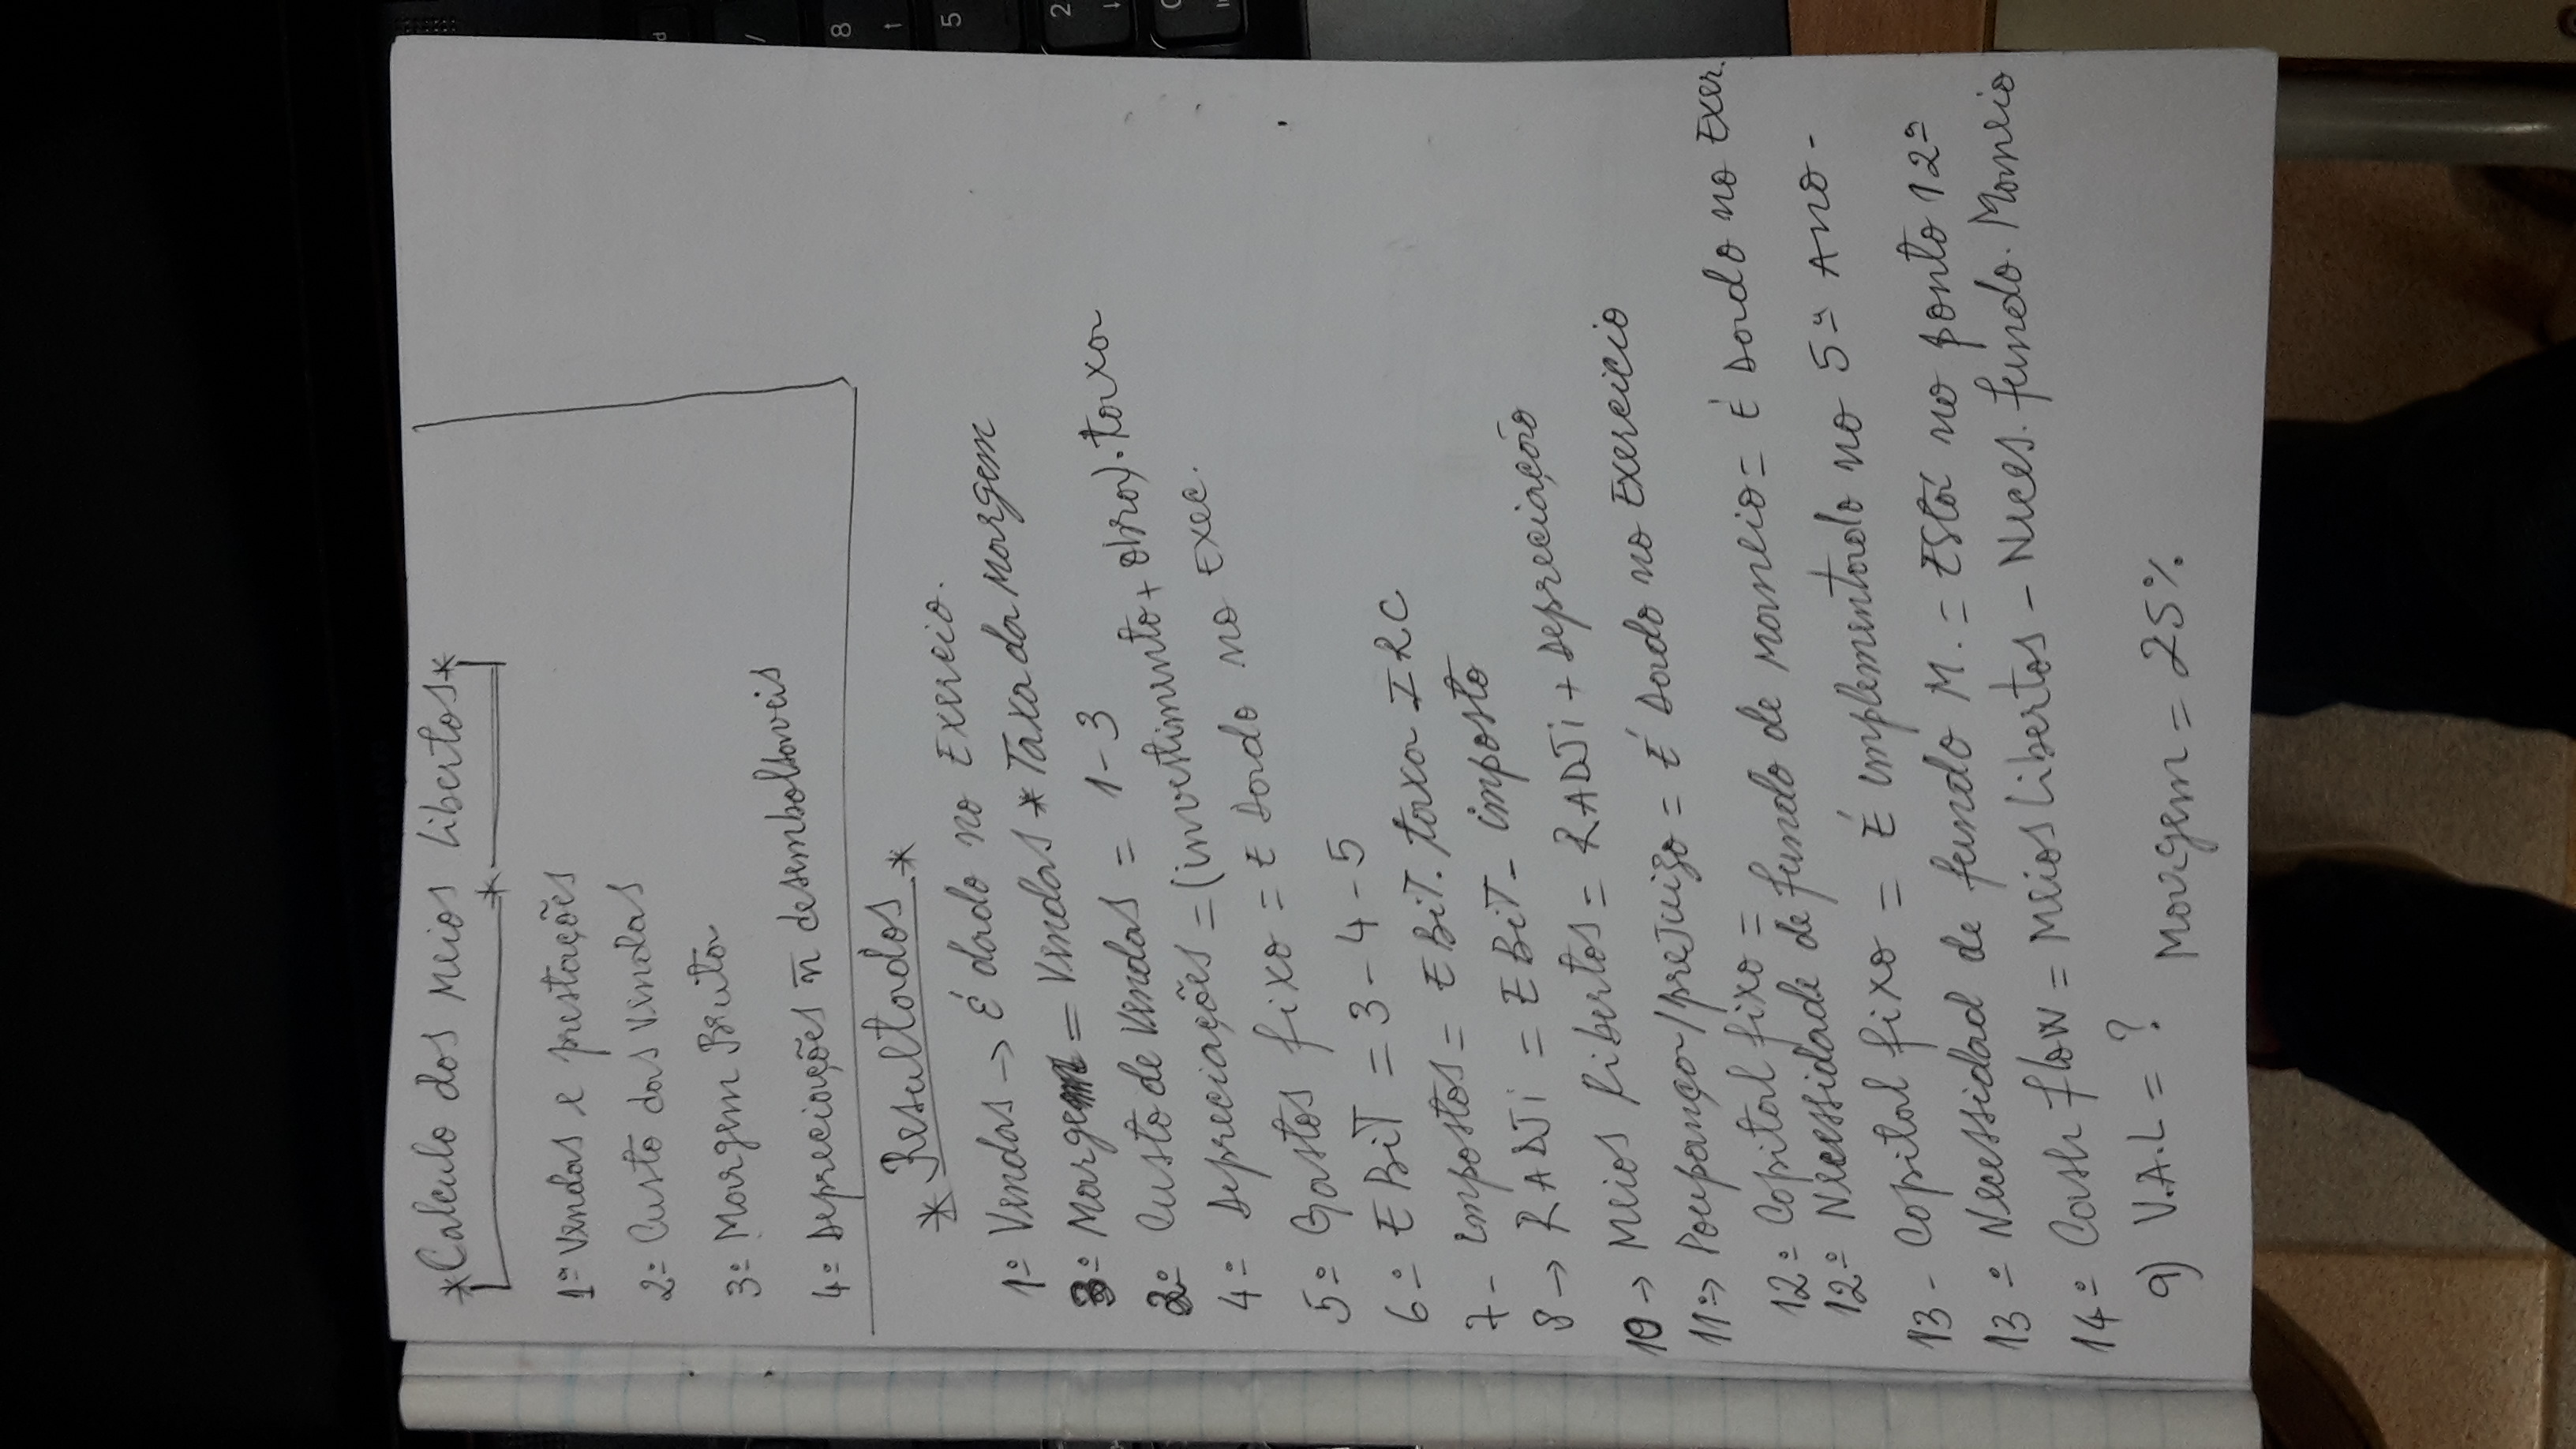 *Calculo dos Meios libertos*
1ª Vendas e prestações
2º Custo das Vendas
3º Margem Bruta
4º Depreciações ñ desembolsaveis
* Resultados *
1º Vendas → É dado no Exercio.
3º Margem = Vendas * Taxa da Margem
2º Custo de Vendas = 1-3
4º Depreciações = (investimento + obra). taxa
5º Gastos fixo = E Dado no Exec.
6º EBiT = 3-4-5
7- impostos = EBiT. taxa IRC
8 → RADJi = EBiT - imposto
10 → Meios libertos = RADJi + Depreciação
11º→ Poupança/prejuizo = É Dado no Exercicio
12º Copital fixo =
12º Necessidade de fundo de Maneio = É Dado no Exer.
13- Copital fixo = É implementado no 5º Ano-
13º Necessidad de fundo M. = Está no ponto 12ª
14º Cash flow = Meios libertos - Neces. fundo. Maneio
9) V.A.L = ? Margem = 25%
SAMSUNG
8
5
2